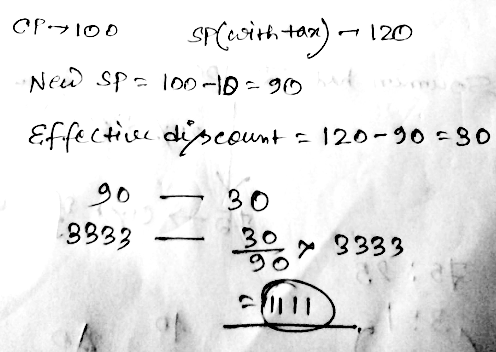 CP→100 SP(with tax) → 120
New SP = 100-10 = 90
Effective discount = 120-90 = 30
90 — 30
3333 — 30/90 × 3333
= 1111